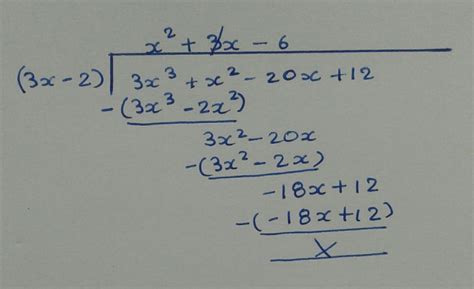 x² + x - 6
(3x-2) 3x³ + x² - 20x + 12
-(3x³ - 2x²)
3x² - 20x
-(3x² - 2x)
-18x + 12
-(-18x + 12)
X